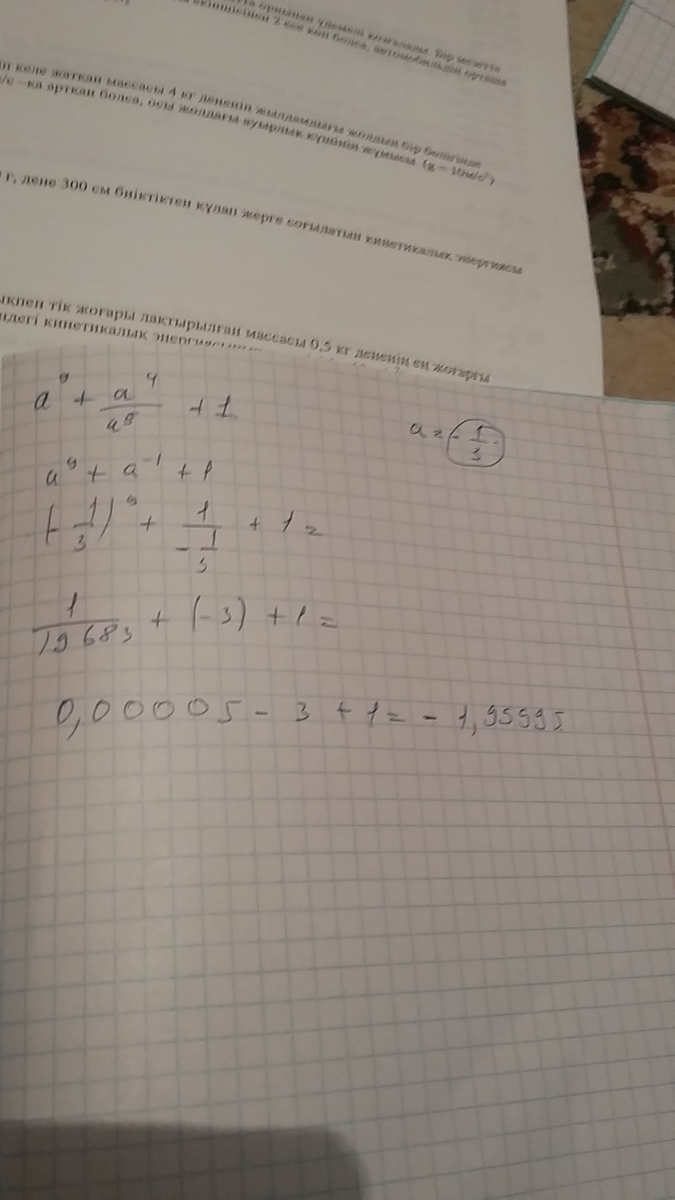 орнынан үдемелі қозғалады. Бір мезетте
екіншісінен 2 есе көп болса, автомобильдің орташа
келе жатқан массасы 4 кг дененің жылдамдығы жолдың бір бөлігінде
–қа артқан болса, осы жолдағы ауырлық күшінің жұмысы. (g = 10м/с²)
г, дене 300 см биіктіктен құлап жерге соғылатын кинетикалық энергиясы
тік жоғары лақтырылған массасы 0,5 кг дененің ең жоғарғы
кинетикалық
a⁹ + a⁴/a⁵ + 1
a = -1/3
a⁹ + a⁻¹ + 1
(-1/3)⁹ + 1/(-1/3) + 1 =
1/19683 + (-3) + 1 =
0,00005 - 3 + 1 = - 1,95995